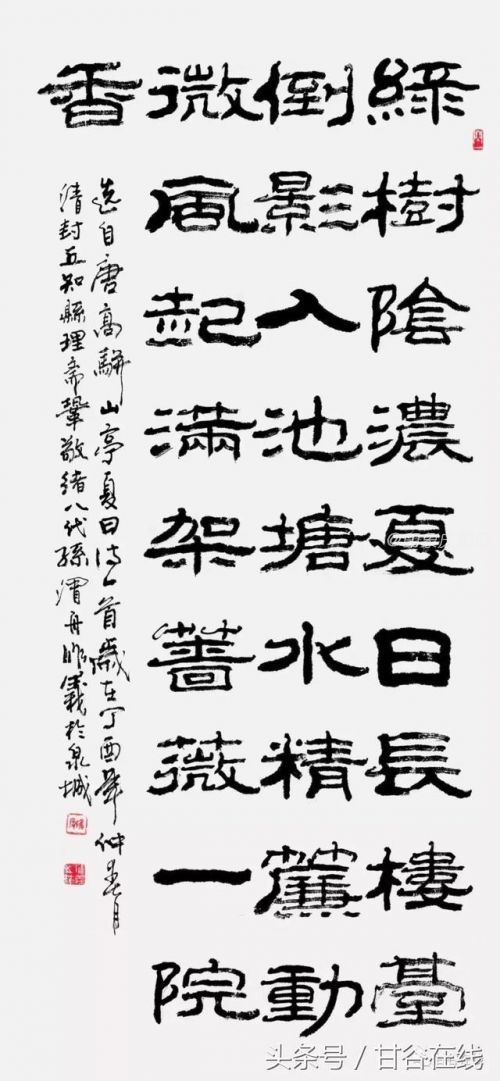 綠樹陰濃夏日長樓臺
倒影入池塘水精簾動
微風起滿架薔薇一院
香
选自唐高駢山亭夏日诗一首歲在丁酉年仲春月
清封五知縣理斋鞏敬緒八代孫渭舟於泉城
头条号 / 甘谷在线